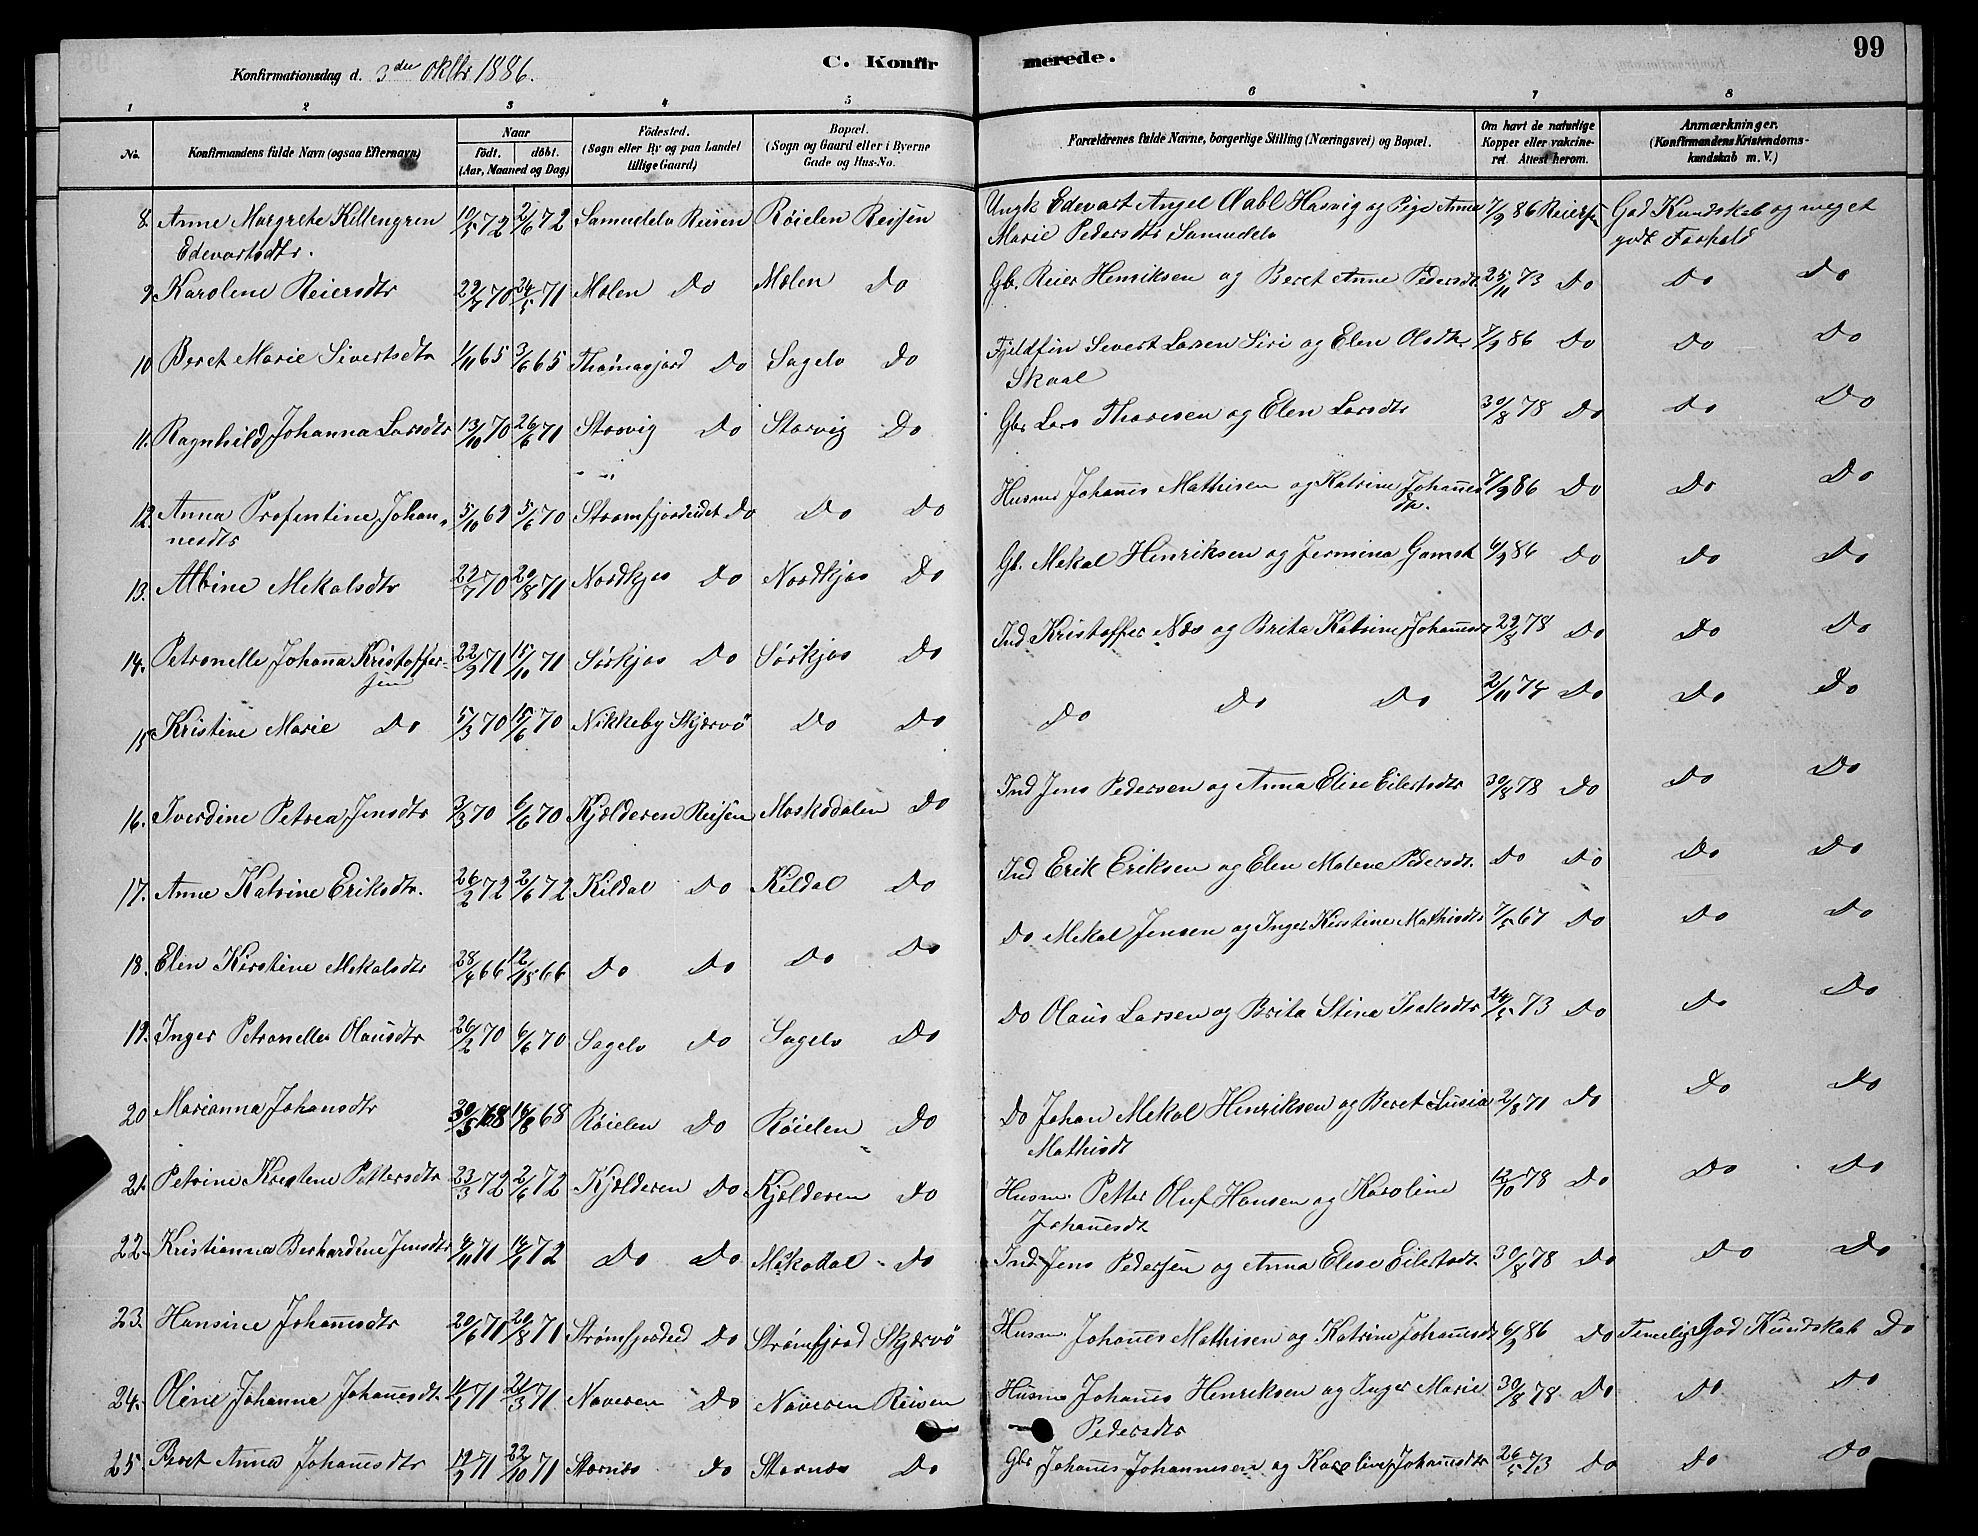 99
Konfirmationsdag d. 3die Oktbr 1886.
C. Konfirmerede.
1 2 3 4 5 6 7 8
No.
Konfirmandens fulde Navn (ogsaa Efternavn)
Naar
födt. döbt.
(Aar, Maaned og Dag)
Födested.
(Sogn eller By og paa Landet
tillige Gaard)
Bopæl.
(Sogn og Gaard eller i Byerne
Gade og Hus-No.
Forældrenes fulde Navne, borgerlige Stilling (Næringsvei) og Bopæl.
Om havt de naturlige
Kopper eller vakcine-
ret. Attest herom.
Anmærkninger.
(Konfirmandens Kristendoms-
kundskab m. V.)
8. Anne Margrete Killengren 10/5 72 2/6 72 Samuelelv Reisen Röielen Reisen Ungk Edevart Angel Hasvig og Pige Anne 7/9 86 God Kundskab og meget
Edevartsdtr. Marie Pedersdtr Samuelelv godt Forhold
9. Karoline Reiersdtr 70 24/5 71 Molen Do Molen Do Gb. Reier Henriksen og Beret Anne Pedersdt. 25/11 73 Do Do Do
10 Beret Marie Sivertsdtr 1/11 65 3/6 65 Thomasjord Do Sagelv Do Fjeldfin Sivert Larsen Siri og Elen Olsdtr. 7/9 86 Do Do Do
Skaal
11. Ragnhild Johanna Larsdtr 13/10 70 26/6 71 Storvig Do Storvig Do Gbr Lars Thoresen og Elen Larsdtr 30/8 78 Do Do Do
12. Anna Profentine Johan- 5/10 69 5/6 70 Strömfjordeidet Do Do Do Husm Johañes Mathisen og Katrine Johañes 7/9 86 Do Do Do
nesdtr dtr.
13. Albine Mekalsdtr 22/7 70 20/8 71 Nordkjos Do Nordkjos Do Gb. Mekal Henriksen og Jermina Gamst 6/9 86 Do Do Do
14. Petronelle Johaña Kristoffer- 22/9 71 15/10 71 Sörkjos Do Sörkjos Do Ind Kristoffer Nes og Brita Katrine Johañesdt 78 Do Do Do
sen
15 Kristine Marie Do 5/3 70 15/6 70 Nikkeby Skjærvö Do Do Do Do Do 2/11 74 Do Do Do
16. Iverdine Petrea Jensdtr 3/3 70 6/6 70 Kjelderen Reisen Moskodalen Do Ind Jens Pedersen og Anna Elise Eilertsdtr 30/8 78 Do Do Do
17. Anne Katrine Eriksdtr. 26/2 72 2/6 72 Kildal Do Kildal Do Ind Erik Eriksen og Elen Malene Pedersdt. Do Do Do Do
18. Elen Kirstine Mekalsdtr 28/4 66 12/8 66 Do Do Do Do Do Mekal Jensen og Inger Kirstine Mathisdtr 7/5 67 Do Do Do
19. Inger Petronelle Olausdtr 26/2 70 6/6 70 Sagelv Do Sagelv Do Do Olaus Larsen og Brita Stina Isaksdtr 24/5 73 Do Do Do
20 Marianna Johansdtr 30/5 68 68 Röielen Do Röielen Do Do Johan Mekal Henriksen og Beret Susia 2/8 71 Do Do Do
Mathisdt
21. Petrine Kristene Pettersdtr 23/3 72 2/6 72 Kjelderen Do Kjelderen Do Husm. Petter Oluf Hansen og Karoline 12/10 78 Do Do Do
Johañesdt
22. Kristianna Berhardine Jensdtr 71 72 Do Do Moskodal Do Ind Jens Pedersen og Anna Elise Eilertsdt. 30/8 78 Do Do Do
23. Hansine Johañesdtr 20/6 71 20/8 71 Strömfjordeid Do Strömfjord Skjærvö Husm. Johañes Mathisen og Katrine Johañesdt 6/9 86 Do Temelig God Kundskab Do
24. Oline Johanna Johañesdt. 71 21/3 71 Naveren Do Naveren Reisen Husm Johañes Henriksen og Inger Marie 30/8 78 Do Do Do
Pedersdtr
25. Beret Anna Johañesdtr 19/9 71 22/10 71 Stornes Do Stornes Do Gbr Johañes Johannesen og Karoline Johañesdtr 26/5 73 Do Do Do